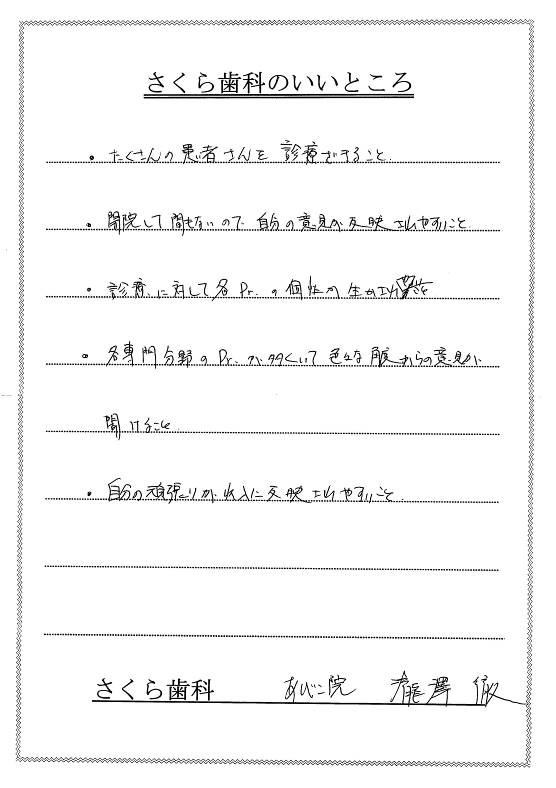 さくら歯科のいいところ
・たくさんの患者さんを診療できること.
・開院して間もないので自分の意見が反映されやすいこと
・診療に対して各Dr.の個性が生かされ
・各専門分野のDr.が多くいて色々な角度からの意見が
聞けること
・自分の頑張りが収入に反映されやすいこと.
さくら歯科 あびこ院 瀧澤 徹